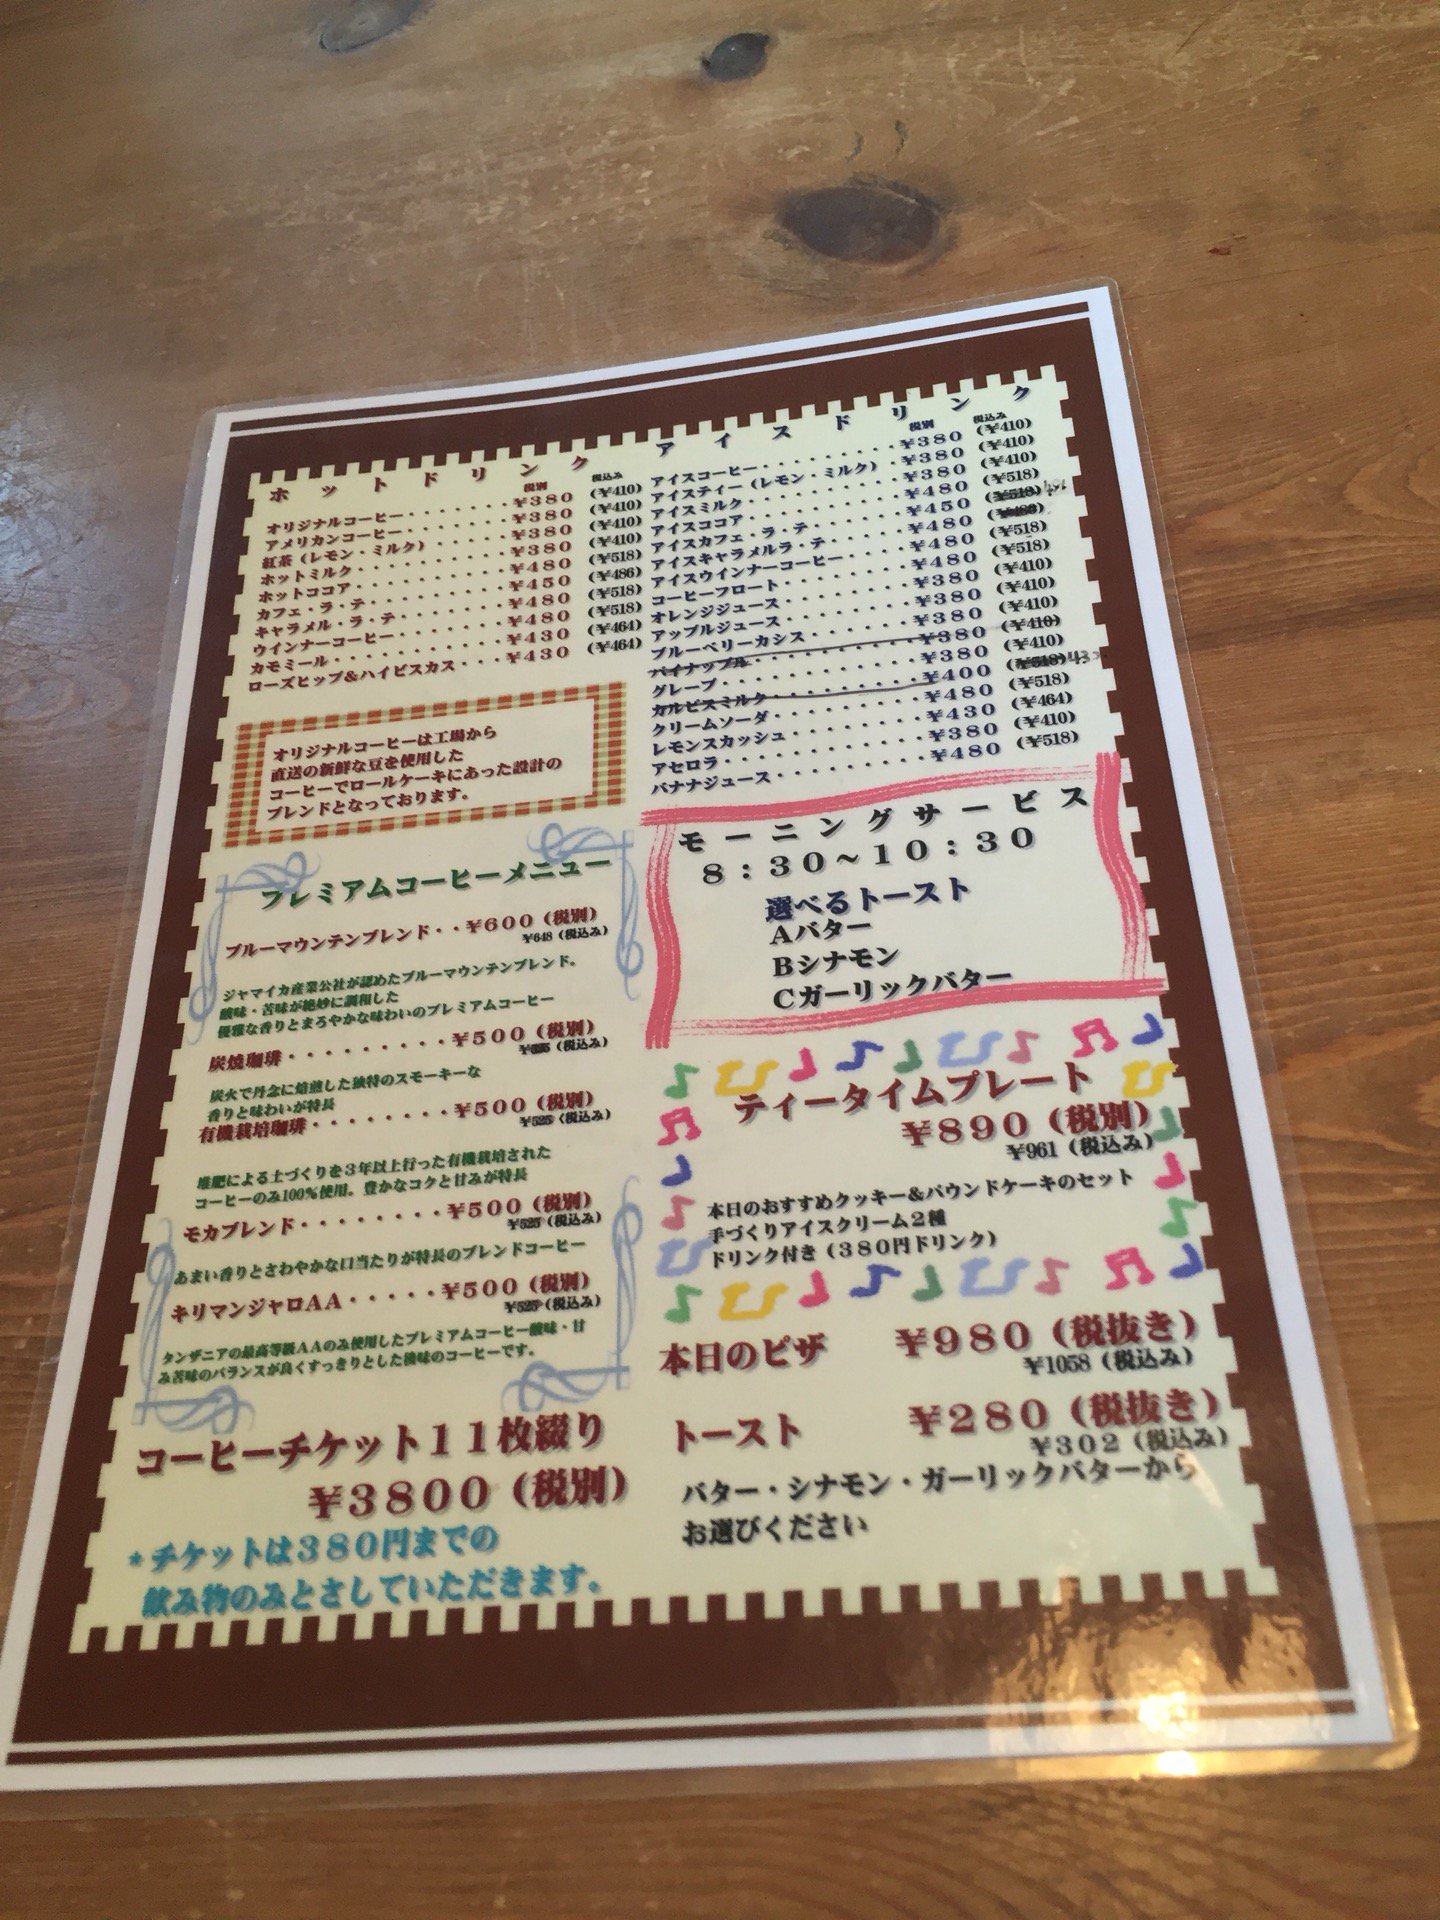 ホットドリンク
税別 税込み
オリジナルコーヒー・・・・・・・¥380 (¥410)
アメリカンコーヒー・・・・・・・¥380 (¥410)
紅茶（レモン・ミルク）・・・・・¥380 (¥410)
ホットミルク・・・・・・・・・・¥380 (¥410)
ホットココア・・・・・・・・・・¥480 (¥518)
カフェ・ラ・テ・・・・・・・・・¥450 (¥486)
キャラメル・ラ・テ・・・・・・・¥480 (¥518)
ウインナーコーヒー・・・・・・・¥480 (¥518)
カモミール・・・・・・・・・・・¥430 (¥464)
ローズヒップ＆ハイビスカス・・・¥430 (¥464)
オリジナルコーヒーは工場から
直送の新鮮な豆を使用した
コーヒーでロールケーキにあった設計の
ブレンドとなっております。
プレミアムコーヒーメニュー
ブルーマウンテンブレンド・・¥600（税別）
¥648（税込み）
ジャマイカ産業公社が認めたブルーマウンテンブレンド。
酸味・苦味が絶妙に調和した
優雅な香りとまろやかな味わいのプレミアムコーヒー
炭焼珈琲・・・・・・・・・¥500（税別）
（税込み）
炭火で丹念に焙煎した独特のスモーキーな
香りと味わいが特長
有機栽培珈琲・・・・・・・¥500（税別）
¥525（税込み）
堆肥による土づくりを3年以上行った有機栽培された
コーヒーのみ100％使用。豊かなコクと甘みが特長
モカブレンド・・・・・・・・¥500（税別）
¥525（税込み）
あまい香りとさわやかな口当たりが特長のブレンドコーヒー
キリマンジャロＡＡ・・・・・¥500（税別）
¥525（税込み）
タンザニアの最高等級ＡＡのみ使用したプレミアムコーヒー酸味・甘
み苦味のバランスが良くすっきりとした後味のコーヒーです。
コーヒーチケット１１枚綴り
¥3800（税別）
＊チケットは３８０円までの
飲み物のみとさしていただきます。
アイスドリンク
税別 税込み
アイスコーヒー・・・・・・・・・¥380 (¥410)
アイスティー（レモン・ミルク）・¥380 (¥410)
アイスミルク・・・・・・・・・・¥380 (¥410)
アイスココア・・・・・・・・・・¥480 (¥518)
アイスカフェ・ラ・テ・・・・・・¥450 (¥518)
アイスキャラメルラ・テ・・・・・¥480
アイスウインナーコーヒー・・・・¥480 (¥518)
コーヒーフロート・・・・・・・・¥480 (¥518)
オレンジジュース・・・・・・・・¥380 (¥410)
アップルジュース・・・・・・・・¥380 (¥410)
ブルーベリーカシス・・・・・・・¥380 (¥410)
パイナップル・・・・・・・・・・¥380 (¥410)
グレープ・・・・・・・・・・・・¥380 (¥410)
カルピスミルク・・・・・・・・・¥400 (¥518)
クリームソーダ・・・・・・・・・¥480 (¥518)
レモンスカッシュ・・・・・・・・¥430 (¥464)
アセロラ・・・・・・・・・・・・¥380 (¥410)
バナナジュース・・・・・・・・・¥480 (¥518)
モーニングサービス
８：３０～１０：３０
選べるトースト
Ａバター
Ｂシナモン
Ｃガーリックバター
ティータイムプレート
¥890（税別）
¥961（税込み）
本日のおすすめクッキー＆パウンドケーキのセット
手づくりアイスクリーム２種
ドリンク付き（３８０円ドリンク）
本日のピザ ¥980（税抜き）
¥1058（税込み）
トースト ¥280（税抜き）
¥302（税込み）
バター・シナモン・ガーリックバターから
お選びください